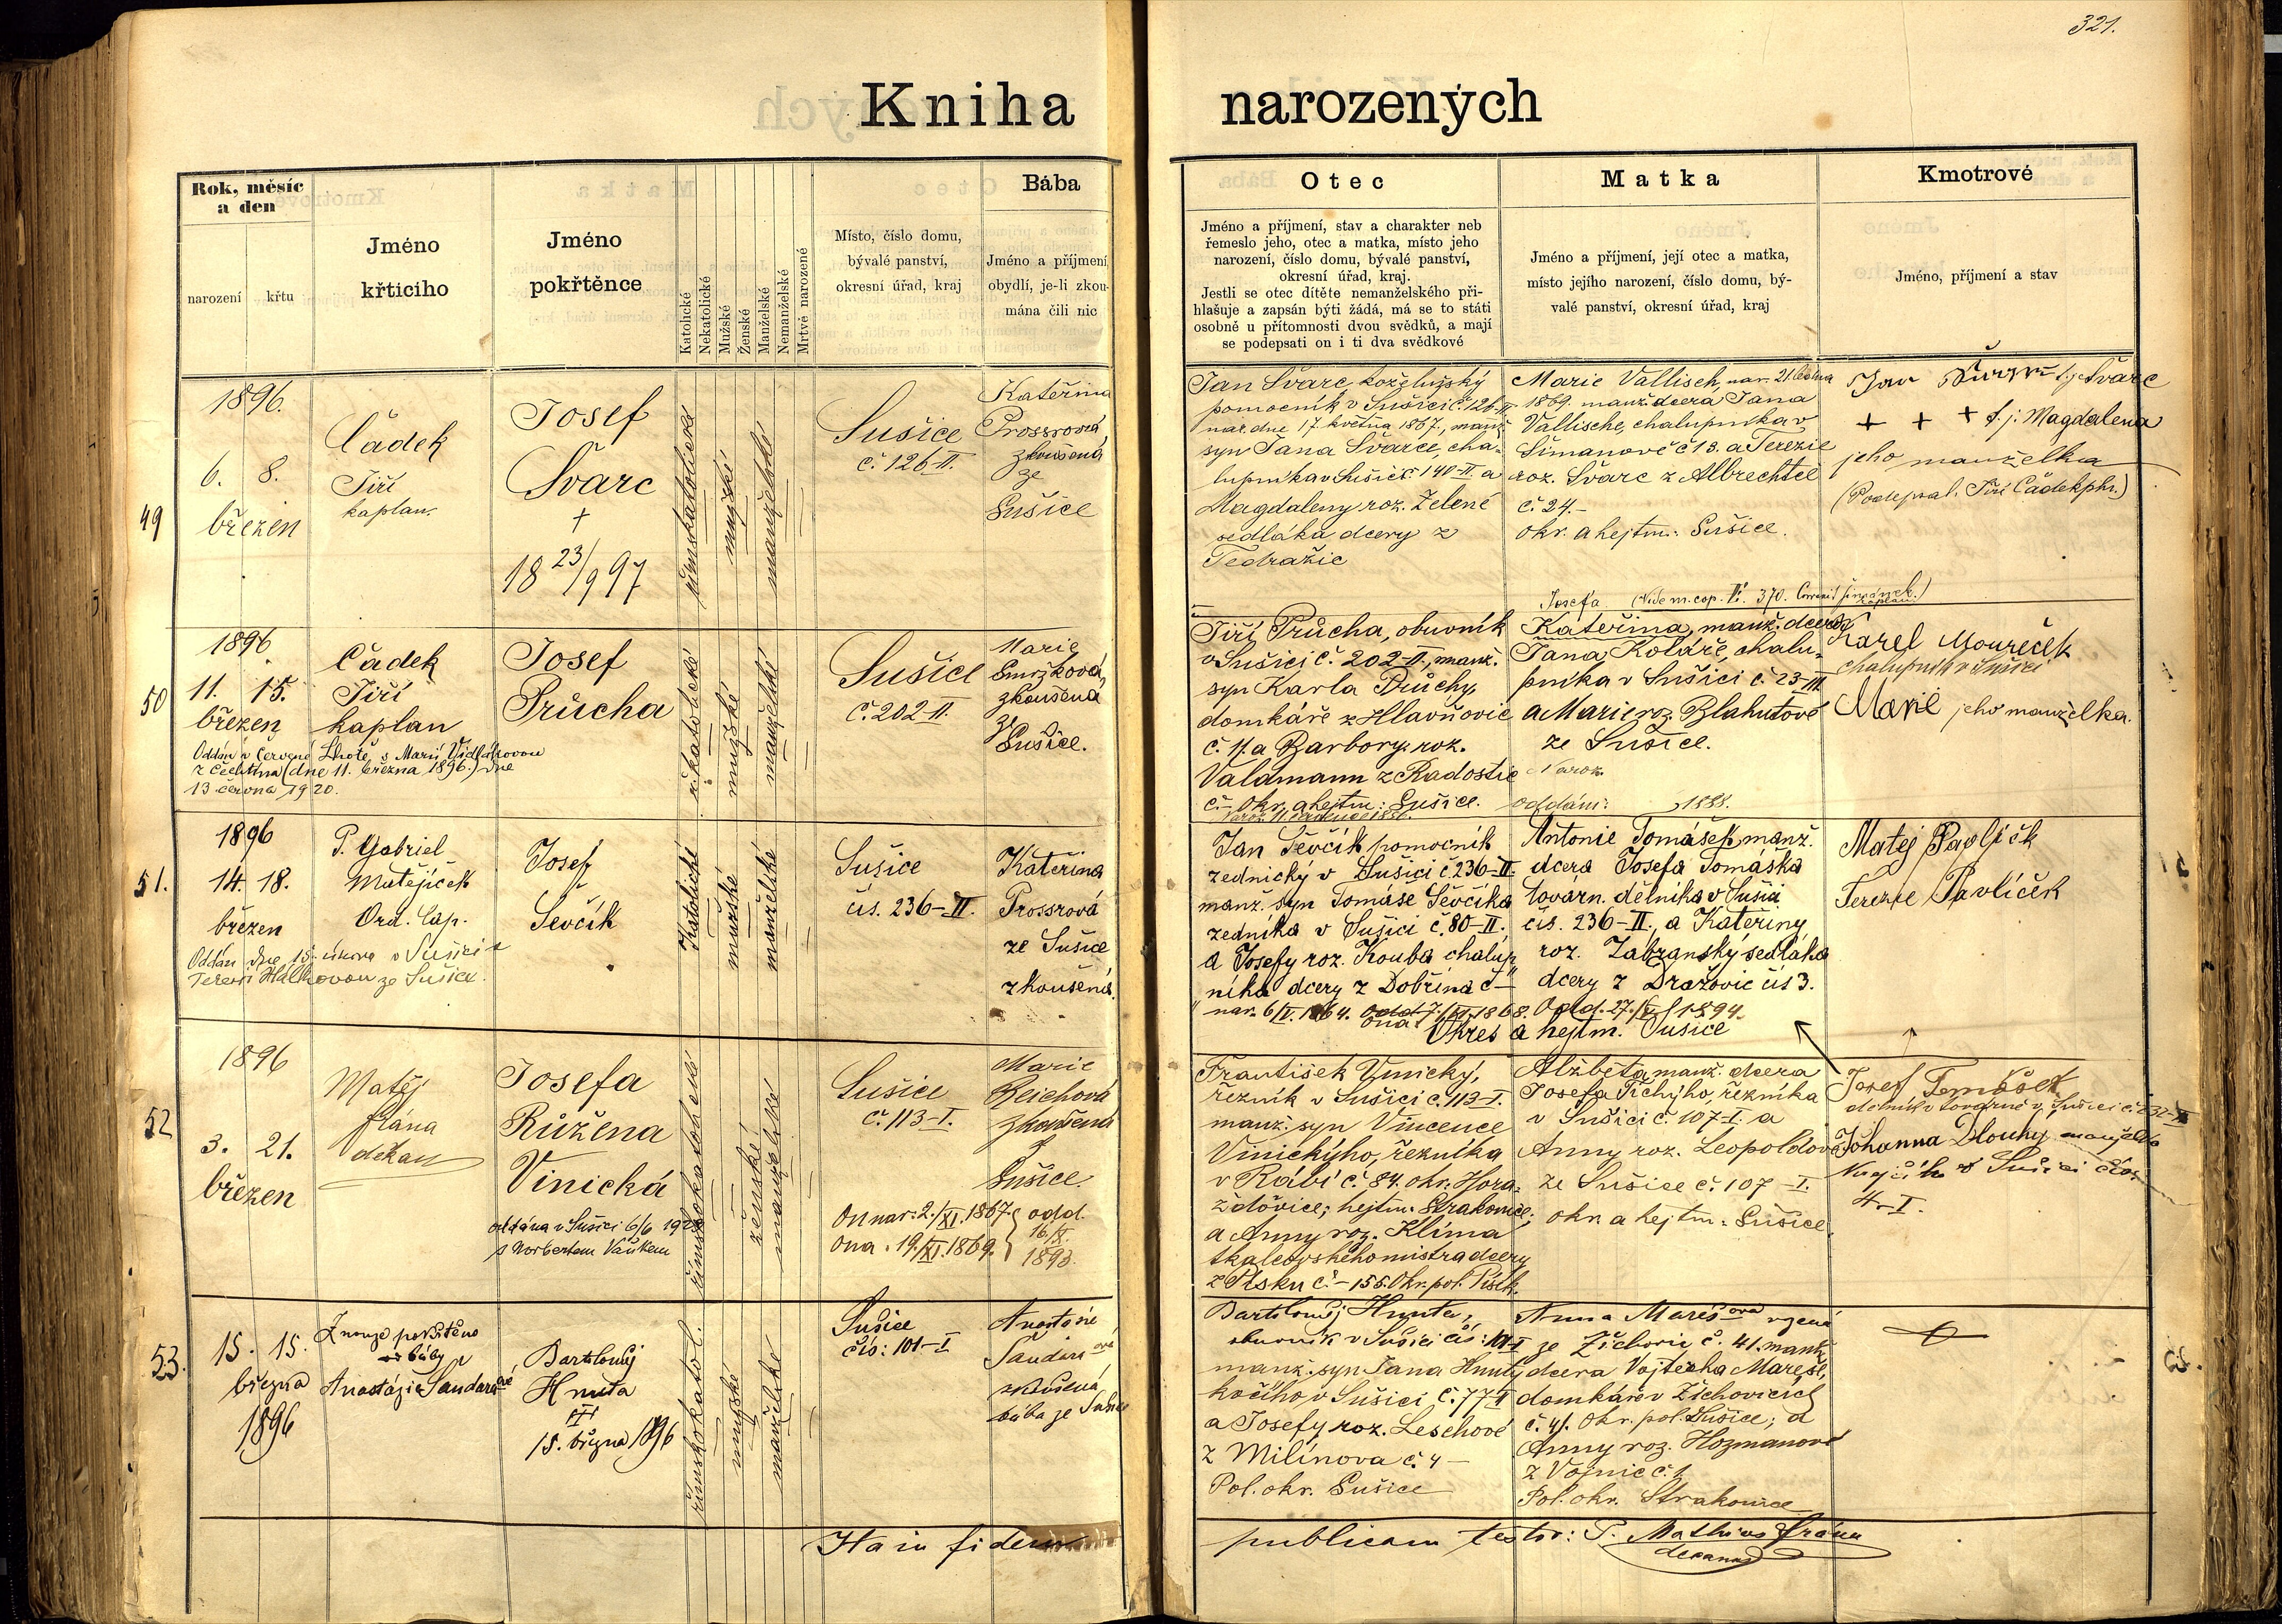 321.
Kniha narozených
Rok, měsíc
a den
narození
křtu
Jméno
křticiho
Jméno
pokřtěnce
Katolické
Nekatolické
Mužské
Ženské
Manželské
Nemanželské
Mrtvě narozené
Místo, číslo domu,
bývalé panství,
okresní úřad, kraj
Bába
Jméno a příjmení,
obydlí, je-li zkou-
mána čili nic
Otec
Jméno a příjmení, stav a charakter neb
řemeslo jeho, otec a matka, místo jeho
narození, číslo domu, bývalé panství,
okresní úřad, kraj.
Jestli se otec dítěte nemanželského při-
hlašuje a zapsán býti žádá, má se to státi
osobně u přítomnosti dvou svědků, a mají
se podepsati on i ti dva svědkové
Matka
Jméno a příjmení, její otec a matka,
místo jejího narození, číslo domu, bý-
valé panství, okresní úřad, kraj
Kmotrové
Jméno, příjmení a stav
49
1896.
6. 8.
březen
Čádek
Jiří
kaplan
Josef
Švarc
†
18 23/9 97
římskokatolické
mužské
manželské
Sušice
č. 126-II.
Kateřina
Prossrová,
zkoušená
ze
Sušice
Jan Švarc, koželužský
pomocník v Sušici č. 126-II
nar. dne 17. května 1867., manž.
syn Jana Švarce, cha-
lupníka v Sušici č. 140-II. a
Magdaleny roz. Zelené
sedláka dcery z
Tedražic
Marie Vallisch, nar. 21. ledna
1869. manž. dcera Jana
Vallische, chalupníka v
Šimanově č 13. a Terezie
roz. Švarc z Albrechtic
č. 24.-
okr. a hejtm.: Sušice.
Jan Švarc
+ + + t. j. Magdalena
jeho manželka
(Podepsal. Jiří Čádek)
50
1896
11. 15.
březen
Čádek
Jiří
kaplan
Oddán v Červené Lhotě s Marií Vidlákovou
z Čechtína (dne 11. března 1896.) dne
13 června 1920.
Josef
Průcha
ř. katolické
mužské
manželské
Sušice
č. 202-II.
Marie
Smržková,
zkoušená
ze
Sušice.
Jiří Průcha, obuvník
v Sušici č. 202-II., manž.
syn Karla Průchy,
domkáře z Hlavňovic
č. 11. a Barbory roz.
Valdmann z Radostic
č.- Okr. a hejtm.: Sušice.
Josefa (Vide m. cop. 370.
Kateřina, manž. dcera
Jana Koláře, chalu-
pníka v Sušici č. 23-III
a Marie roz. Blahutové
ze Sušice.
Naroz.
oddáni: 1888.
Karel Moureček
chalupník v Sušici
Marie jeho manželka.
51.
1896
14. 18.
březen
P. Gabriel
Matějíček
Ord. Cap.
Oddán dne 15. února v Sušici s
Terezií Hálkovou ze Sušice.
Josef
Ševčík
Katolické
mužské
manželské
Sušice
čís. 236-II.
Kateřina
Prossrová
ze Sušice
zkoušená.
Jan Ševčík pomocník
zednický v Sušici č 236-II.
manž. syn Tomáše Ševčíka
zedníka v Sušici č. 80-II.
a Josefy roz. Kouba chalup-
níka dcery z Dobřína č –
nar. 6/IV. 1864.
Antonie Tomášek manž.
dcera Josefa Tomáška
tovarn. dělníka v Sušici
čís. 236-II., a Kateřiny
roz. Zábranský sedláka
dcery z Dražovic čís 3.
1868. Odd. 27./ 1894.
Okres a hejtm. Sušice
Matej Pavlíčk
Terezie Pavlíček
52
1896
3. 21.
březen
Matěj
Frána
děkan
Josefa
Růžena
Vinická
oddána v Sušici 6/6
s Norbertem Vaňkem
římskokatolické
ženské
manželské
Sušice
č. 113-I.
On nar: 2./XI. 1867. odd.
Ona . 19./XI. 1869. 16./X.
1893.
Marie
Reichová
zkoušená
z
Sušice.
František Vinický,
řezník v Sušici č. 113-I.
manž. syn Vincence
Vinického, řezníka
v Rábí č. 84. okr. Hora-
žďovice; hejtm. Strakonice;
a Anny roz. Klíma
tkalcovského mistra dcery
z Písku č – 155. Okr. pol. Písek.
Alžběta manž. dcera
Josefa Tichýho, řezníka
v Sušici č. 107-I. a
Anny roz. Leopoldové
ze Sušice č. 107-I.
okr. a hejtm.: Sušice.
Josef Tomášek
dělník v továrně v Sušici č. 232-II
Johanna Dlouhý manželka
v Sušici čís.
4-I.
53.
15. 15.
března
1896
Z nouze pokřtěno
od báby
Anastázie Sandarové
Bartoloměj
Hnuta
†
15. března 1896
římskokatol.
mužské
manželské
Sušice
čís: 101-I
Anastazie
Sandarová
zkoušená
bába ze Sušice
Bartoloměj Hnuta,
obuvník v Sušici čís: 101-I
manž. syn Jana Hnuty
kočího v Sušici č. 77-II
a Josefy roz. Leschové
z Milínova č. 4 –
Pol. okr. Sušice
Anna Marešova
ze Žichovic č. 41. manž.
dcera Vojtěcha Mareše,
domkáře v Žichovicích
č. 41. Okr. pol. Sušice; a
Anny roz. Hozmanové
z Vojnic č. 1
Pol. okr. Strakonice
Ita in fidem publicam testor: P. Mathias Frána
decanus